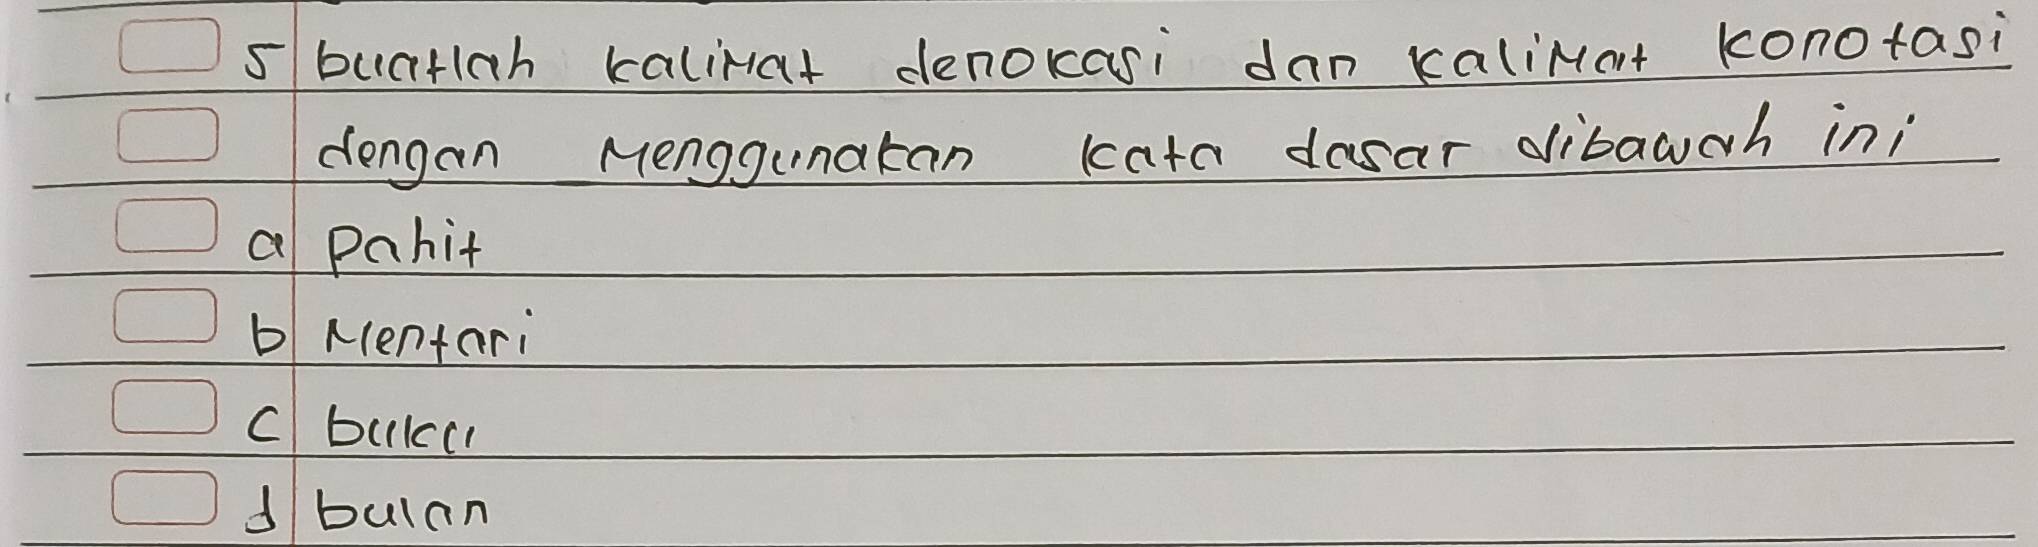 5 buatlah kalimat denokasi dan kalimat konotasi
dengan menggunakan kata dasar dibawah ini
a pahit
b Mentari
c buku
d bulan